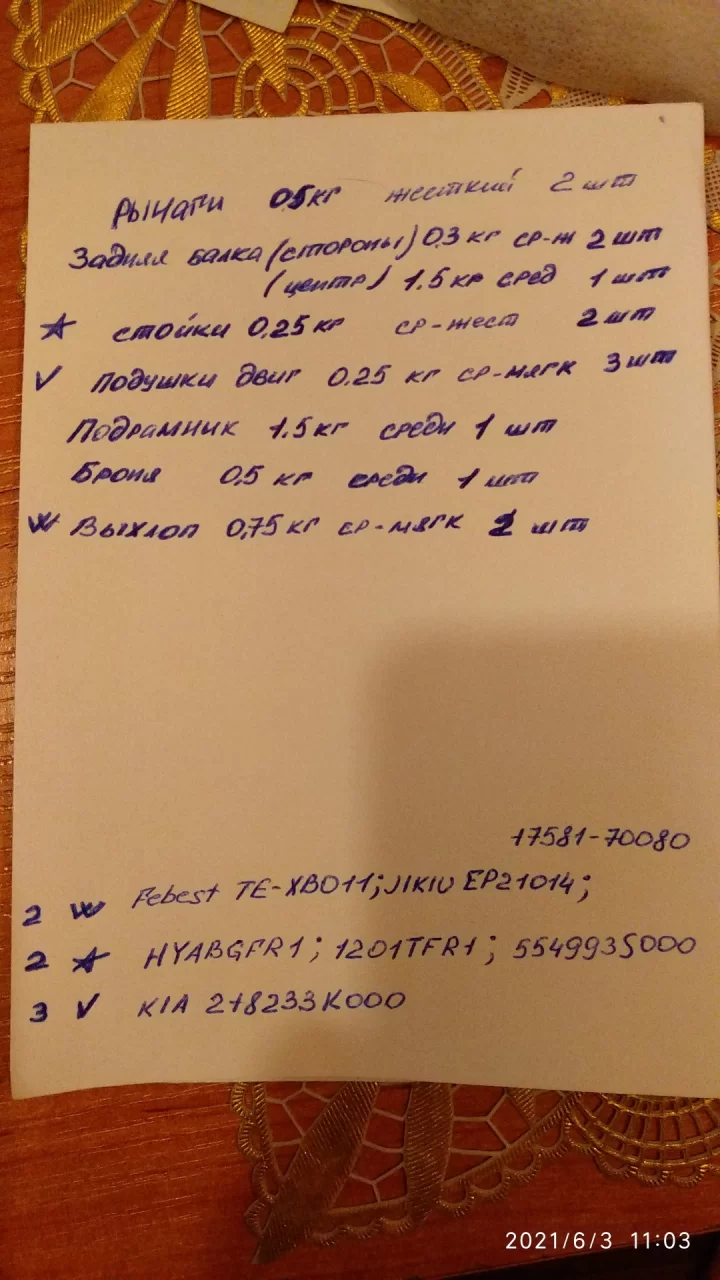 Рычаги 0,5 кг жесткий 2 шт
Задняя балка (стороны) 0,3 кг ср-ж 2 шт
(центр) 1.5 кг сред 1 шт
☆ стойки 0,25 кг ср-жест 2 шт
V Подушки двиг 0.25 кг ср-мягк 3 шт
Подрамник 1.5 кг средн 1 шт
Броня 0,5 кг средн 1 шт
W Выхлоп 0,75 кг ср-мягк 2 шт
17581-70080
2 W Febest TE-XB011; JIKIU EP21014;
2 ☆ HYABGFR1; 1201TFR1; 554993S000
3 V KIA 218233K000
2021/6/3 11:03